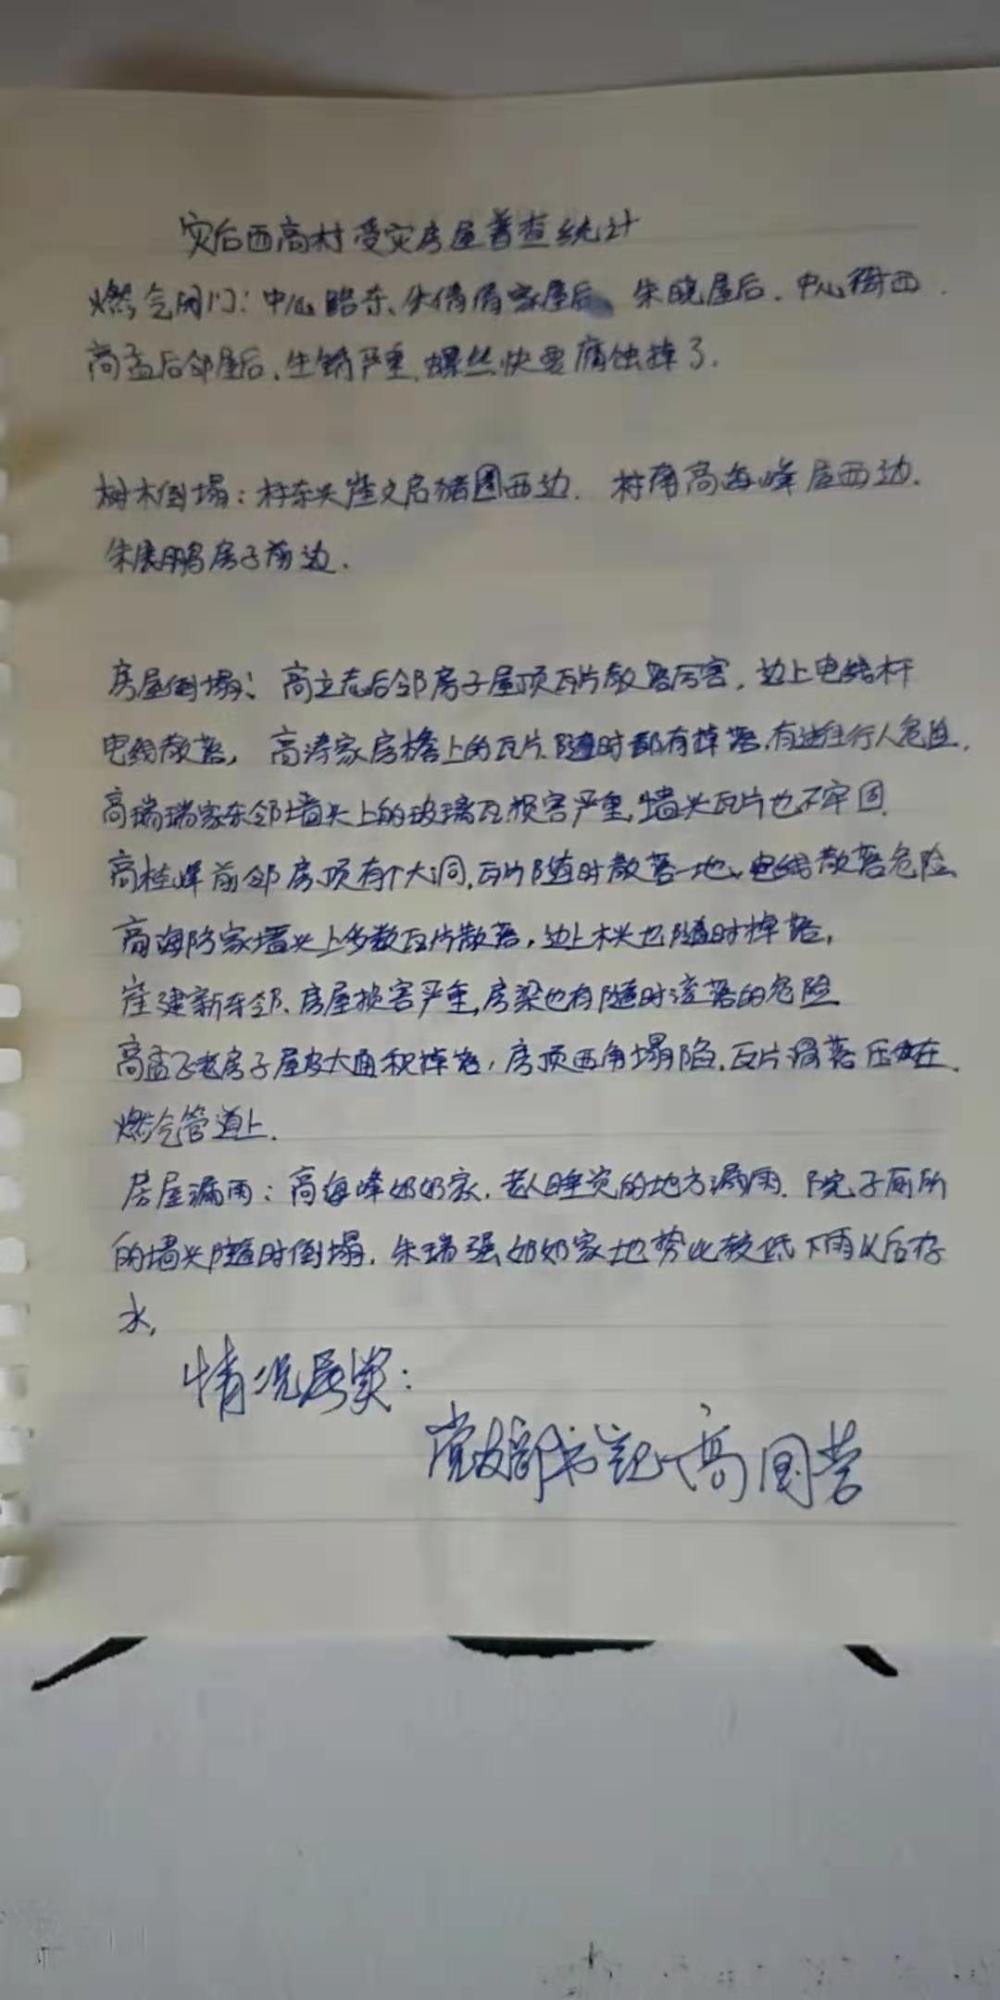 灾后西高村受灾房屋普查统计
燃气阀门：中心路东、朱倩倩家屋后 朱晓屋后．中心街西．
高孟后邻屋后，生锈严重，螺丝快要腐蚀掉了．
树木倒塌：村东头崔文启猪圈西边．村南高海峰屋西边．
朱展鹏房子前边．
房屋倒塌：高立志后邻房子屋顶瓦片散落厉害，边上电线杆
电线散落， 高涛家房檐上的瓦片随时都有掉落，有过往行人危险．
高瑞瑞家东邻墙头上的玻璃瓦损害严重，墙头瓦片也不牢固
高桂峰前邻房顶有个大洞，瓦片随时散落一地、电线散落危险
高海防家墙头上多数瓦片散落，边上木头也随时掉落，
崔建新东邻、房屋损害严重，房梁也有随时滚落的危险
高孟飞老房子屋皮大面积掉落，房顶西角塌陷．瓦片滑落压在
燃气管道上．
房屋漏雨：高海峰奶奶家，老人睡觉的地方漏雨．院子厕所
的墙头随时倒塌．朱瑞强奶奶家地势比较低下雨以后存
水，
情况属实：
党支部书记高国营